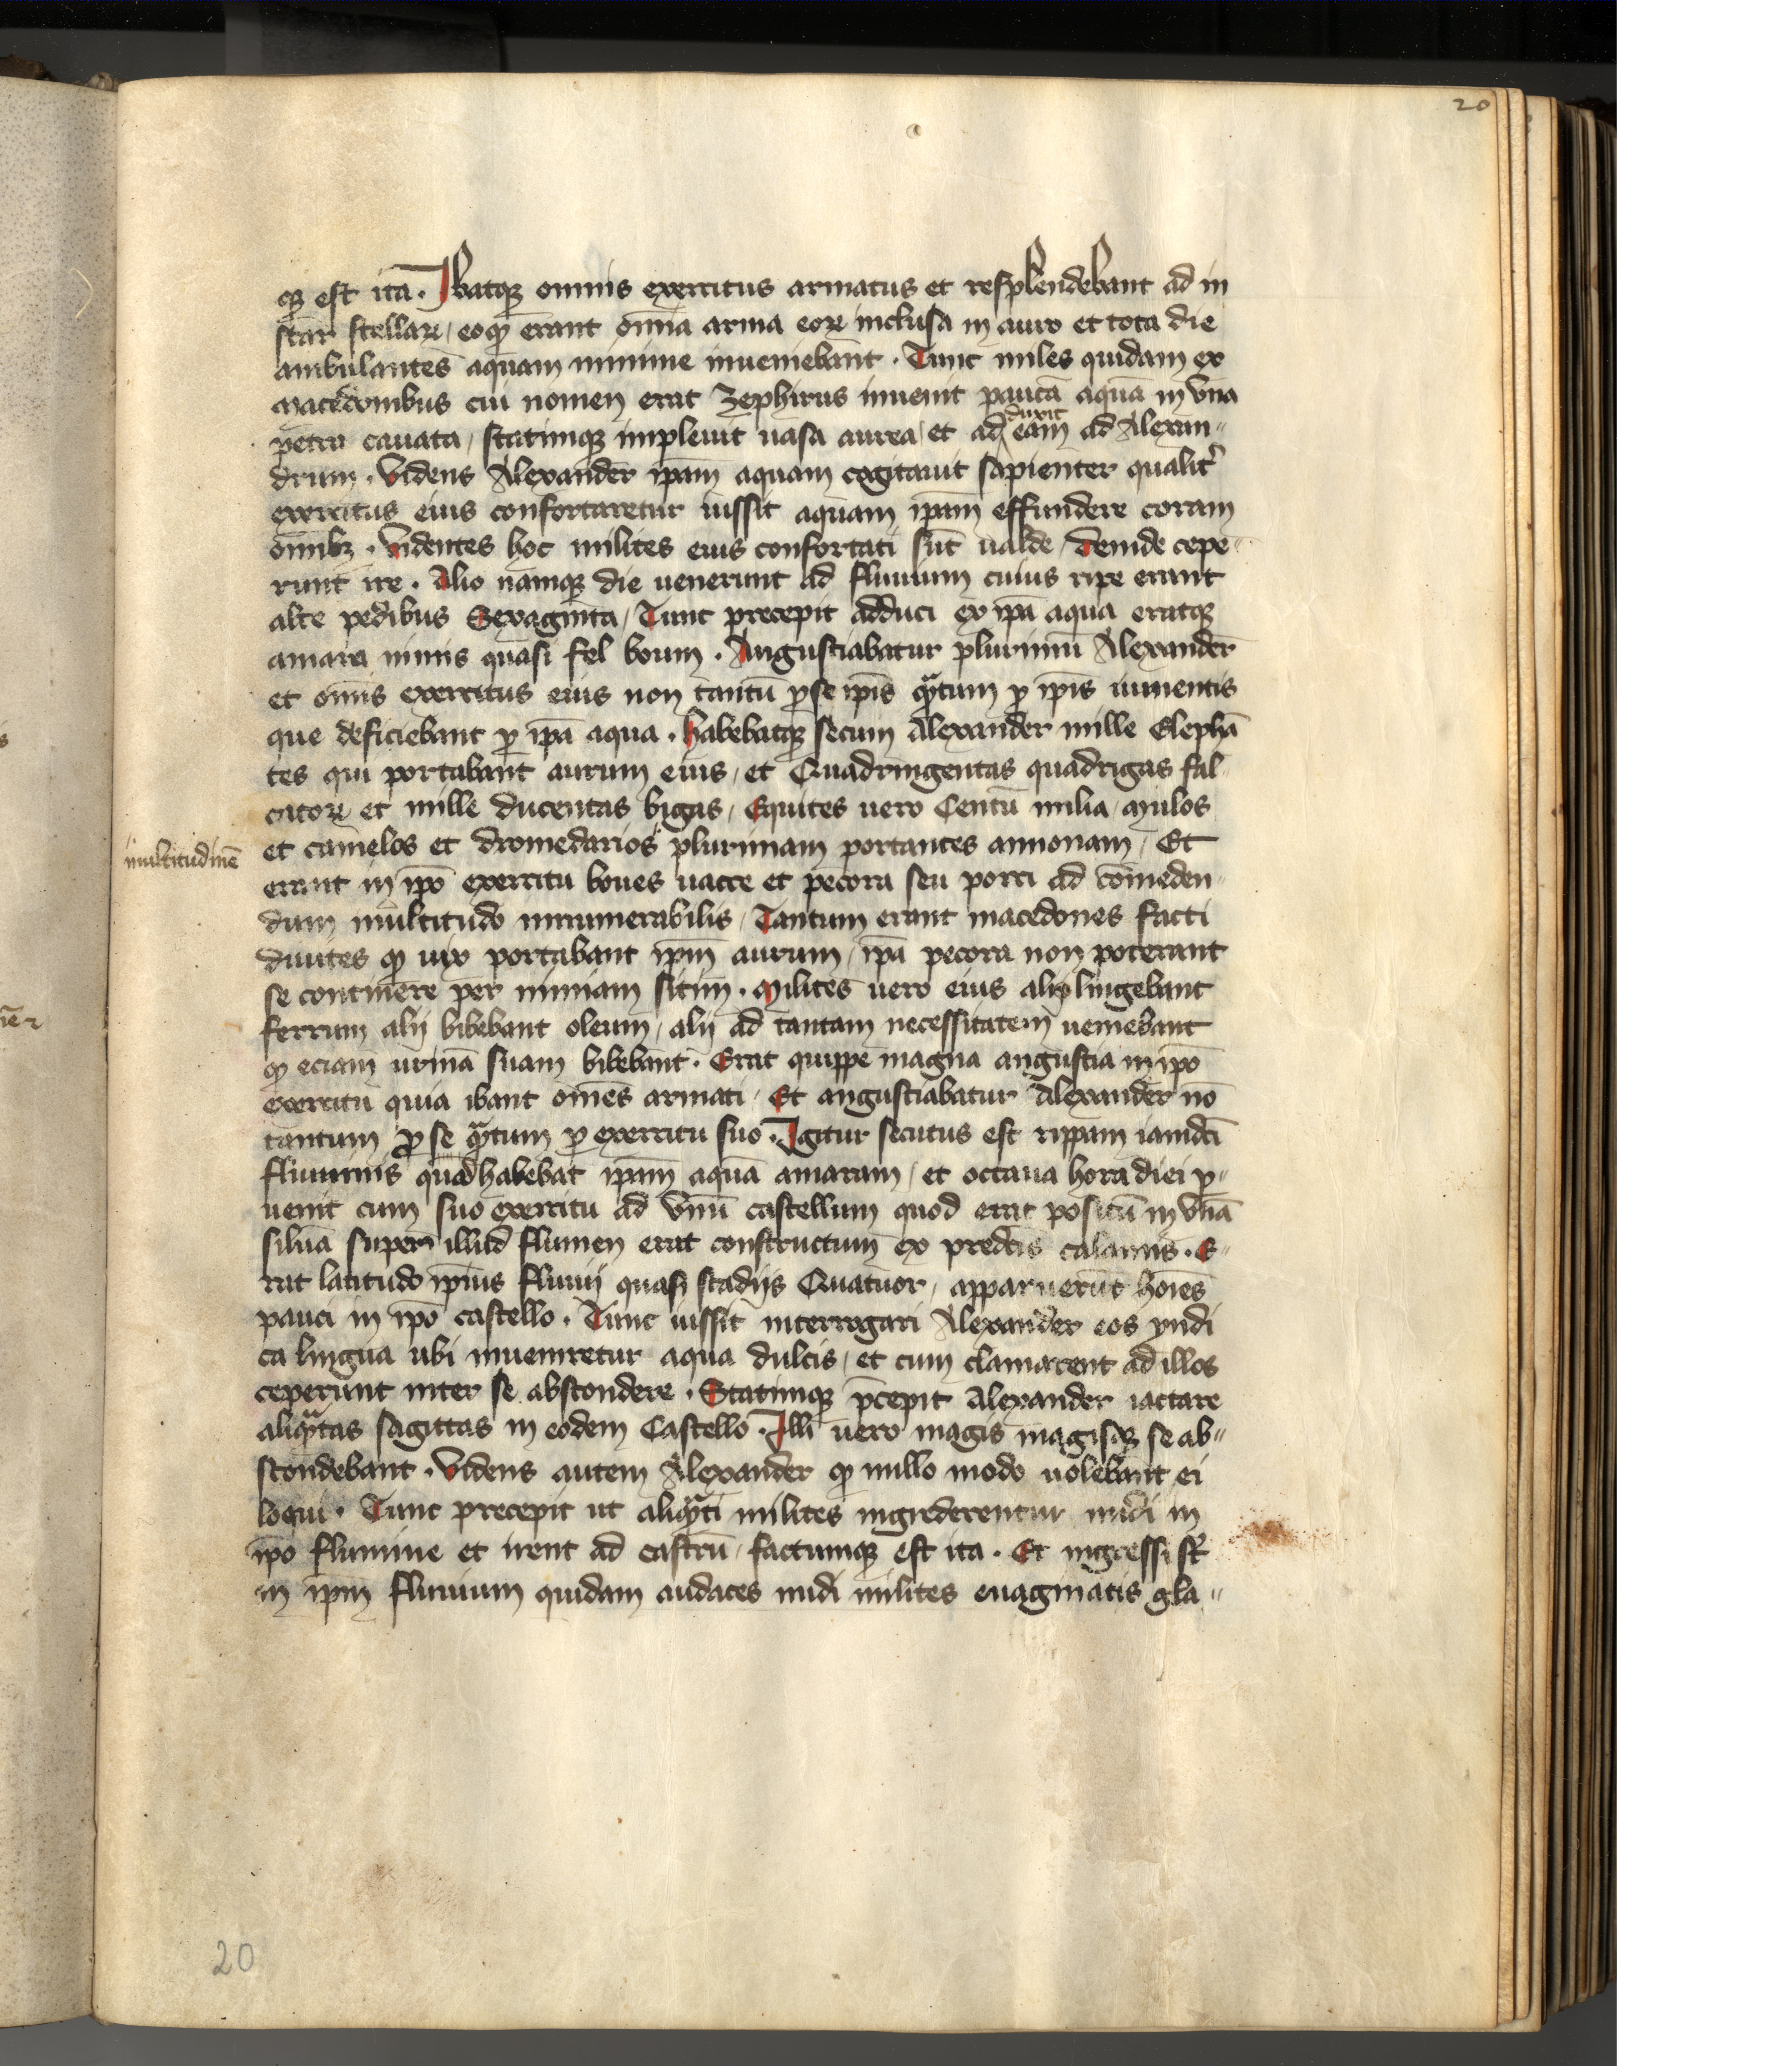 20
qꝫ est ita. Ibatqꝫ omnis exercitus armatus et resplendebant ad in
star stellaꝝ / eoqꝫ erant om̄ia arma eoꝝ inclusa in auro et tota die
ambulantes aquam minime inueniebant. Tunc miles quidam ex
macedonibus cui nomen erat Zephirus inuenit paucā aquā in vna
petra cauata / statimqꝫ impleuit uasa aurea / et ad eam ad Alexan⸗
duxit
drum. Videns Alexander ip̄am aquam cogitauit sapienter qualit͛
exercitus eius confortaretur iussit aquam ip̄am effundere coram
om̄ibꝫ. Videntes hoc milites eius confortati sūt ualde / deinde cepe⸗
runt ire. Alio namqꝫ die uenerunt ad fluuium cuius ripe erant
alte pedibus Sexaginta / Tunc precepit adduci ex ip̄a aqua eratqꝫ
amara nimis quasi fel boum. Angustiabatur plurimū Alexander
et om̄is exercitus eius non tantū ꝓ se ip̄is qᷓtum ꝓ ip̄is iumentis
que deficiebant ꝓ ip̄a aqua. habebatqꝫ secum Alexander mille Elephā
tes qui portabant aurum eius / et Quadringentas quadrigas fal⸗
catoꝝ et mille ducentas bigas / Equites uero Centū milia / mulos
et camelos et dromedarios plurimam portantes annonam / Et
multitudinē
erant in ip̄o exercitu boues uacce et pecora seu porci ad comeden⸗
dum multitudo innumerabilis / Tantum erant macedones facti
diuites qꝫ uix portabant ip̄m aurum / ip̄a pecora non poterant
se continere per nimiam sitim. Milites uero eius alij lingebant
ferrum alij bibebant oleum / alij ad tantam necessitatem ueniebant
qꝫ eciam urinā suam bibebant. Erat quippe magna angustia in ip̄o
exercitu quia ibant om̄es armati / Et angustiabatur Alexander nō
tantum ꝓ se qᷓtum ꝓ exercitu suo. Igitur secutus est rippam iamdc̄i
fluminis quod habebat ip̄am aquā amaram / et octaua hora diei ꝑ⸗
uenit cum suo exercitu ad vnū castellum quod erat positū in vnā
siluā super illud flumen erat constructum ex predc̄is calamis. E⸗
rat latitudo ip̄ius fluuij quasi stadijs Quatuor / apparuerūt hoīes
pauci in ip̄o castello. Tunc iussit interrogari Alexander eos yndi
ca lingua ubi inueniretur aqua dulcis / et cum clamarent ad illos
ceperunt inter se abscondere. Statimqꝫ p̄cepit Alexander iactare
aliqᷓtas sagittas in eodem Castello. Illi uero magis magisqꝫ se ab⸗
scondebant. Videns autem Alexander qꝫ nullo modo uolebant ei
loqui. Tunc precepit ut aliqᷓti milites ingrederentur nudi in
ip̄o flumine et irent ad castrū / factumqꝫ est ita. Et ingressi st̄
in ip̄m fluuium quidam audaces nudi milites euaginatis gla⸗
20